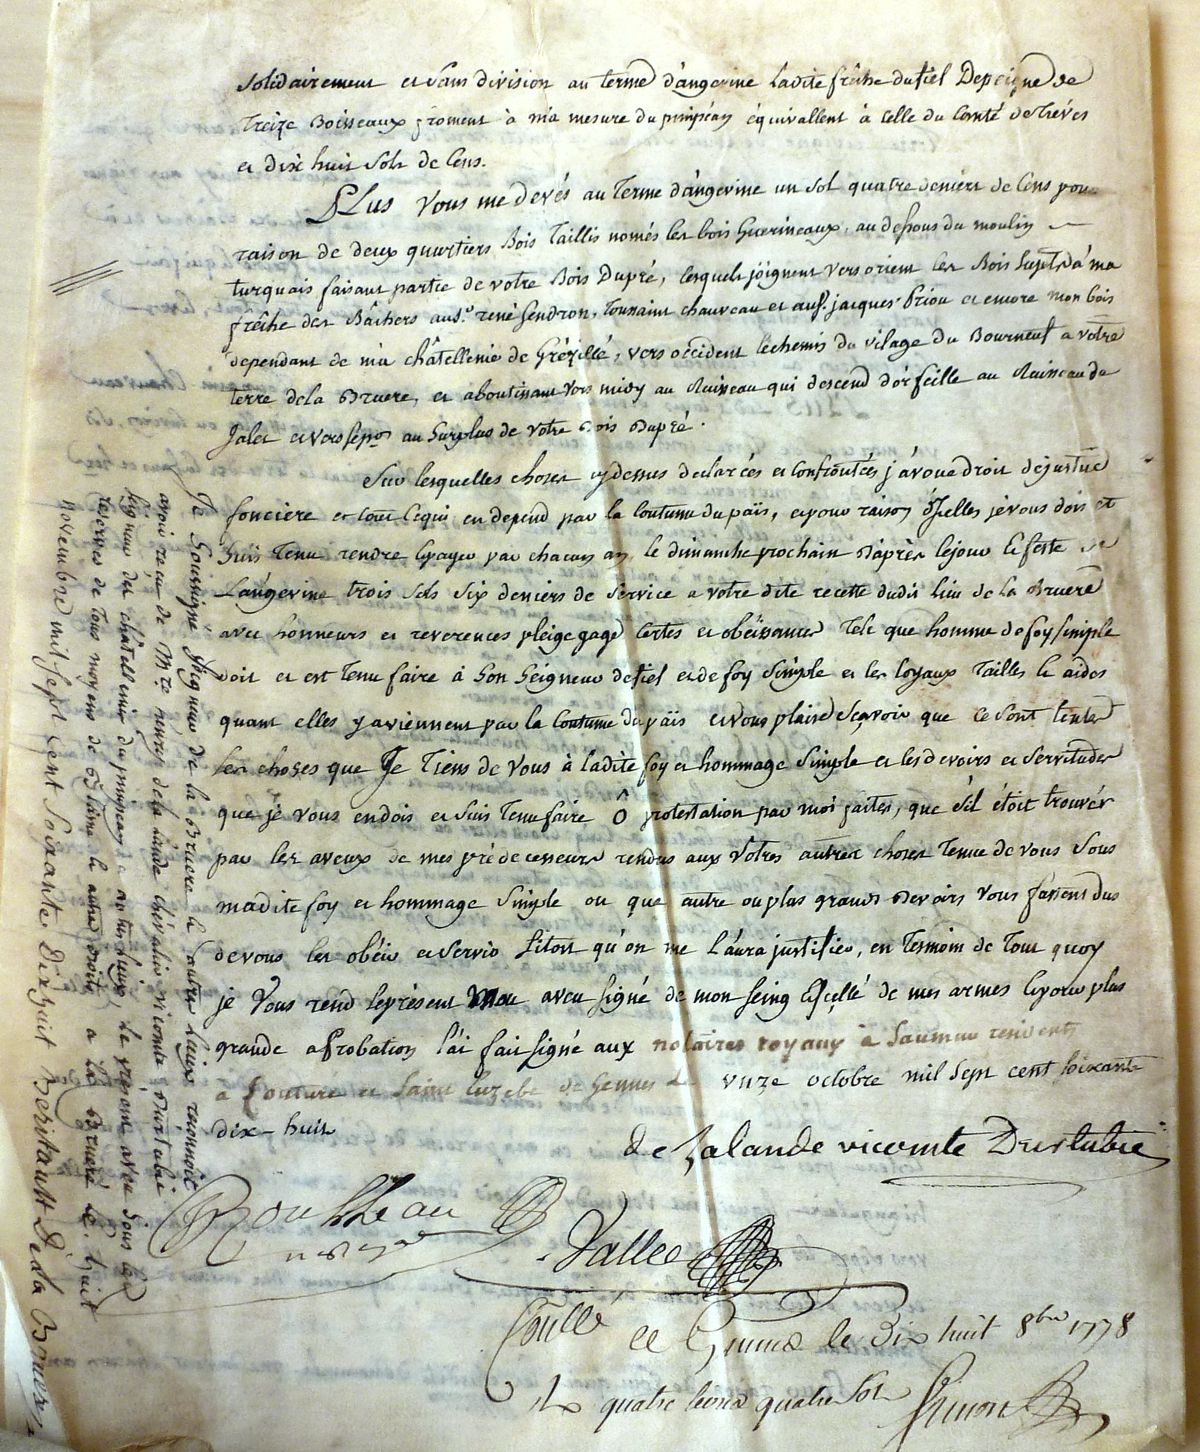 solidairement et sans division au terme d'angevine ladite frêche du fief Depeigne de
Treize Boisseaux froment à ma mesure du pimpéan équivallent à celle du Comté de Trèves
et dix huit sols de Cens.
PLus Vous me devés au Terme d'angevine un sol quatre deniers de Cens pour
raison de deux quartiers Bois Taillis només les bois Guerineaux, au dessous du moulin
turquais faisant partie de votre Bois Dupré, lesquels joignent vers orient les Bois sujets à ma
frêche des Bâchers aud.t rené Gendron, Toussaint chauveau et aud. jacques Priou et encore mon bois
dependant de ma châtellenie de Grézillé, vers occident le chemin du vilage du Bourneuf a votre
terre de la Bruere, et aboutissant vers midy au Ruisseau qui descend d'orfeille au Ruisseau de
Jalet et vers sep.on au surplus de votre Bois Dupré.
Sur lesquelles choses cy dessus declarées et confrontées j'avoue droit de justice
fonciere et tout ce qui en depend par la Coutume du païs, et pour raison d'Icelles je vous dois et
suis tenu rendre & payer par chacun an le dimanche prochain d'après le jour & feste de
L'angevine trois sols six deniers de service a votre dite recette dudit lieu de la Bruere
avec honneurs et reverences pleige gage Certes et obéissances Tels que homme de foy simple
doit et est Tenu faire à Son Seigneur de fief et de foy simple et les loyaux Tailles & aides
quant elles y aviennent par la Coutume du païs et vous plaise sçavoir que ce sont toutes
les choses que Je Tiens de Vous à ladite foy et hommage Simple et les devoirs et Servitudes
que je vous en dois et suis Tenu faire Ô protestation par moi faites, que s'il étoit trouvér
par les aveux de mes prédecesseurs rendus aux Votres autres choses Tenue de vous Sous
madite foy et hommage Simple ou que autre ou plus grands Devoirs Vous fussent dus
de vous les obéir et servir sitost qu'on me l'aura justifier, en Tesmoin de Tout quoy
je Vous rend le présent mon aveu signé de mon seing & scellé de mes armes & pour plus
grande aprobation l'ai fait signé aux notaires royaux à Saumur resident
à Couture et Saint Euzebe de Gennes le vnze octobre mil sept cent soixante
dix-huit
de Lalande vicomte Durtubie
Rousseau
nre royal
Vallee
Coullé et Gennes le Dix huit 8bre 1778
R quatre livres quatre sols Simon
Je Soussigné Seigneur de la Bruere & autres Lieux reconnoit
avoir reçu de M.re . de la Lande chevalier vicomte Durtubie
Seigneur des châtellenie du pimpean & autres lieux, Le présent aveu Sous les
reserves de Tous moyens de blâme & autres droits a la Bruere le huit
novembre mil sept cent soixante Dix huit Beritault Dela Bruere